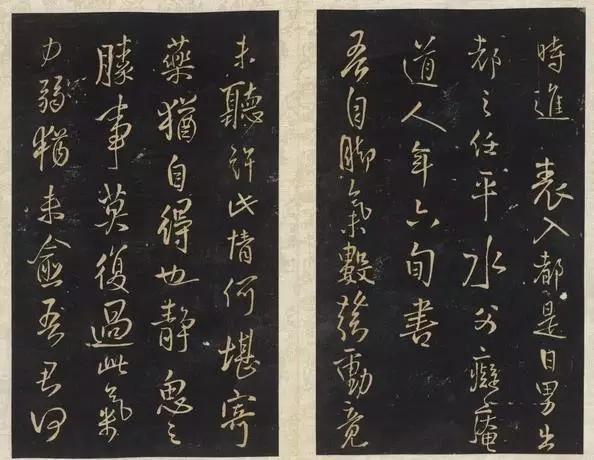 時進 表入都是日男出
都之任平水公癡庵
道人年六旬書
吾自腳氣數發動竟
未聽許此情何堪寄
藥猶自得也靜思之
勝事莫復過此氣
力弱猶未愈吾君何